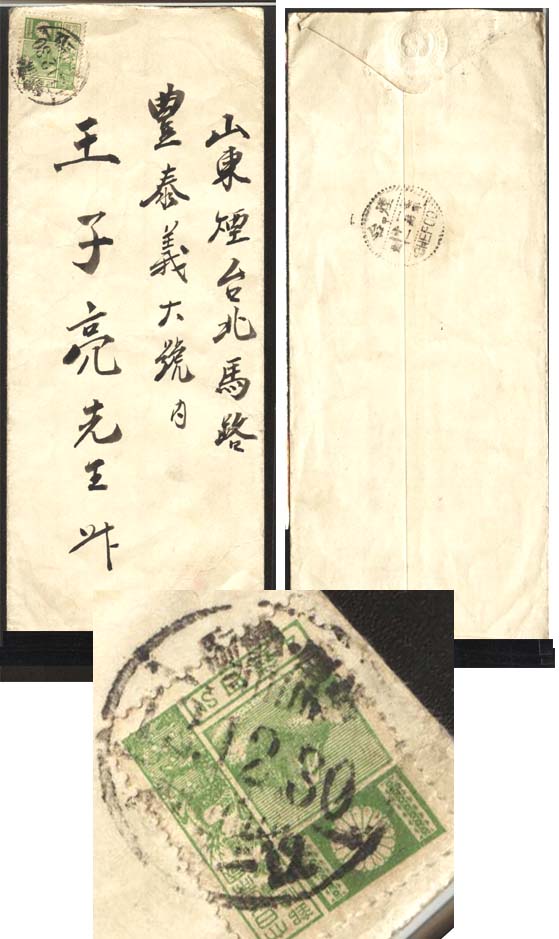 山東煙台北馬路
豊泰義大號内
王子亮先生
CHEFOO
12
30